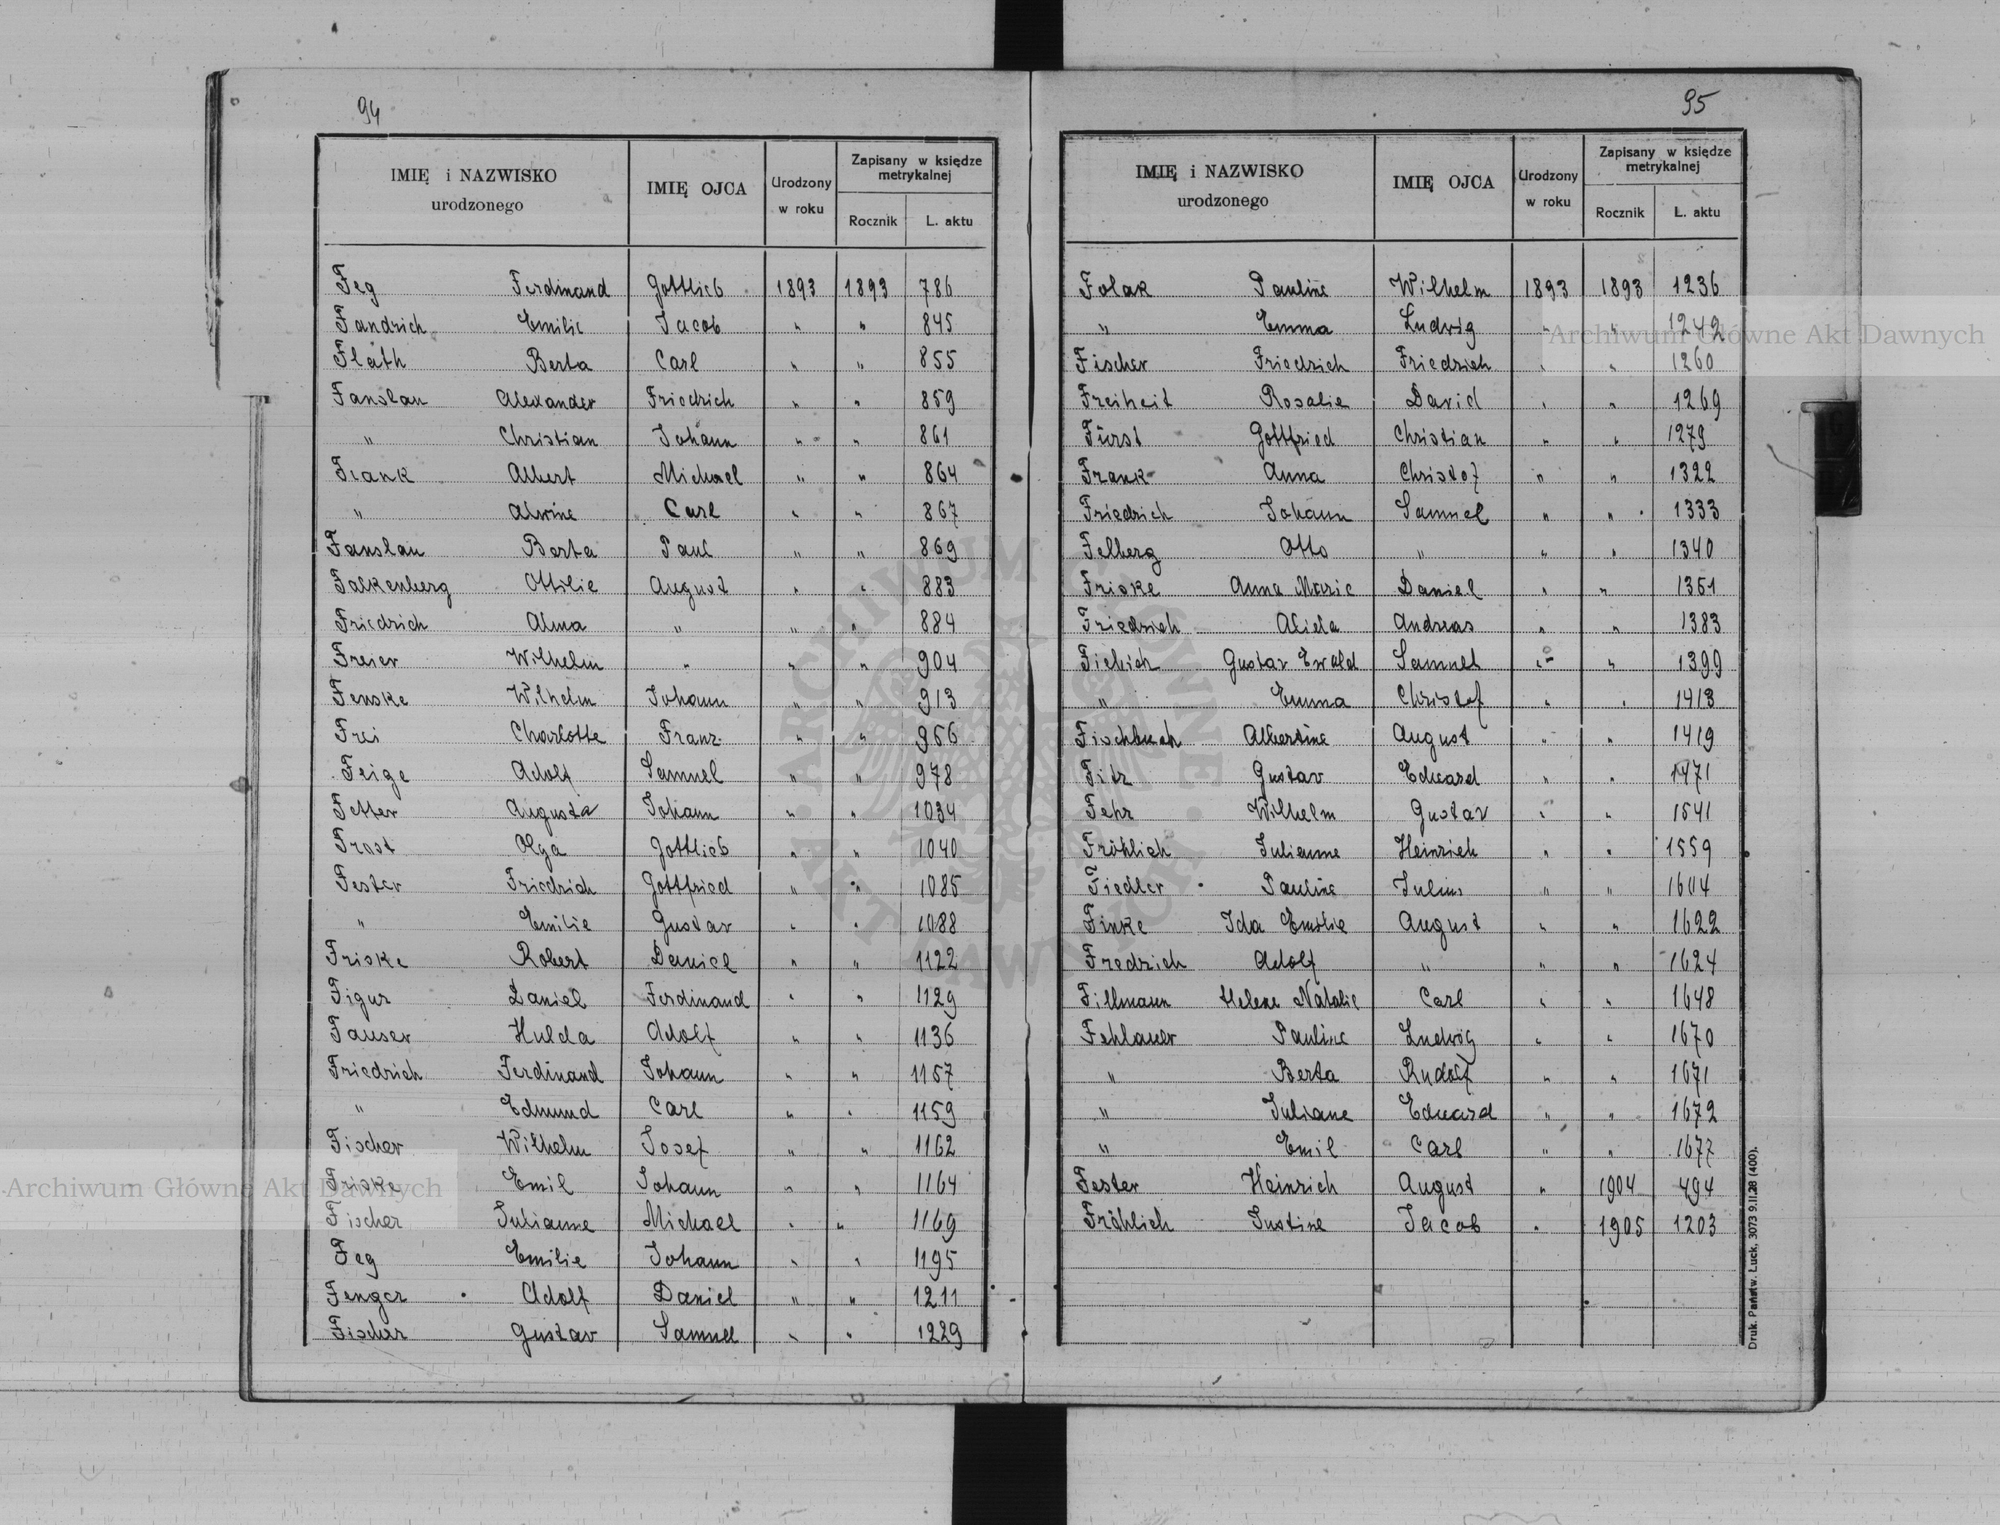 94
IMIĘ i NAZWISKO urodzonego IMIĘ OJCA Urodzony w roku Zapisany w księdze metrykalnej Rocznik L. aktu
Feg Ferdinand Gottlieb 1893 1893 786
Fandrich Emilie Jacob " " 845
Flath Berta Carl " " 855
Fanslau Alexander Friedrich " " 859
" Christian Johann " " 861
Frank Albert Michael " " 864
" Alwine Carl " " 867
Fanslau Berta Paul " " 869
Falkenberg Ottilie August " " 883
Friedrich Alma " " " 884
Freier Wilhelm " " " 904
Fenske Wilhelm Johann " " 913
Frei Charlotte Franz " " 956
Feige Adolf Samuel " " 978
Fetter Augusta Johann " " 1034
Frost Olga Gottlieb " " 1040
Fester Friedrich Gottfried " " 1085
" Emilie Gustav " " 1088
Friske Robert Daniel " " 1122
Figur Daniel Ferdinand " " 1129
Fauser Hulda Adolf " " 1136
Friedrich Ferdinand Johann " " 1157
" Edmund Carl " " 1159
Fischer Wilhelm Josef " " 1162
Friske Emil Johann " " 1164
Fischer Julianne Michael " " 1169
Feg Emilie Johann " " 1195
Fenger Adolf Daniel " " 1211
Fischer Gustav Samuel " " 1229
95
IMIĘ i NAZWISKO urodzonego IMIĘ OJCA Urodzony w roku Zapisany w księdze metrykalnej Rocznik L. aktu
Folak Pauline Wilhelm 1893 1893 1236
" Emma Ludwig " " 1242
Fischer Friedrich Friedrich " " 1260
Freiheit Rosalie David " " 1269
Fürst Gottfried Christian " " 1279
Frank Anna Christof " " 1322
Friedrich Johann Samuel " " 1333
Felberg Otto " " " 1340
Friske Anna Marie Daniel " " 1351
Friedrich Alida Andreas " " 1383
Fiebich Gustav Ewald Samuel " " 1399
" Emma Christof " " 1418
Fischbuch Albertine August " " 1419
Fitz Gustav Eduard " " 1471
Fehr Wilhelm Gustav " " 1541
Fröhlich Julianne Heinrich " " 1559
Fiedler Pauline Julius " " 1604
Finke Ida Emilie August " " 1622
Fredrich Adolf " " " 1624
Fillmann Helene Natalie Carl " " 1648
Fehlauer Pauline Ludwig " " 1670
" Berta Rudolf " " 1671
" Juliane Eduard " " 1672
" Emil Carl " " 1677
Fester Heinrich August " 1904 494
Fröhlich Justine Jacob " 1905 1203
Druk. Państw. Łuck. 3073 9.II.28 (400).
Archiwum Główne Akt Dawnych
Archiwum Główne Akt Dawnych
ARCHIWUM GŁÓWNE AKT DAWNYCH